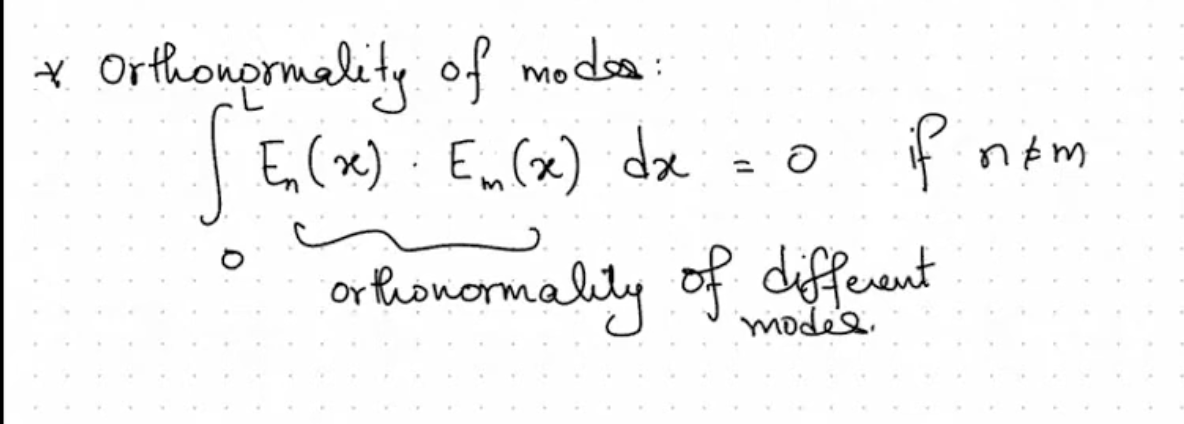 * Orthonormality of modes:
∫₀ᴸ Eₙ(x) · Eₘ(x) dx = 0 if n ≠ m
orthonormality of different
modes.